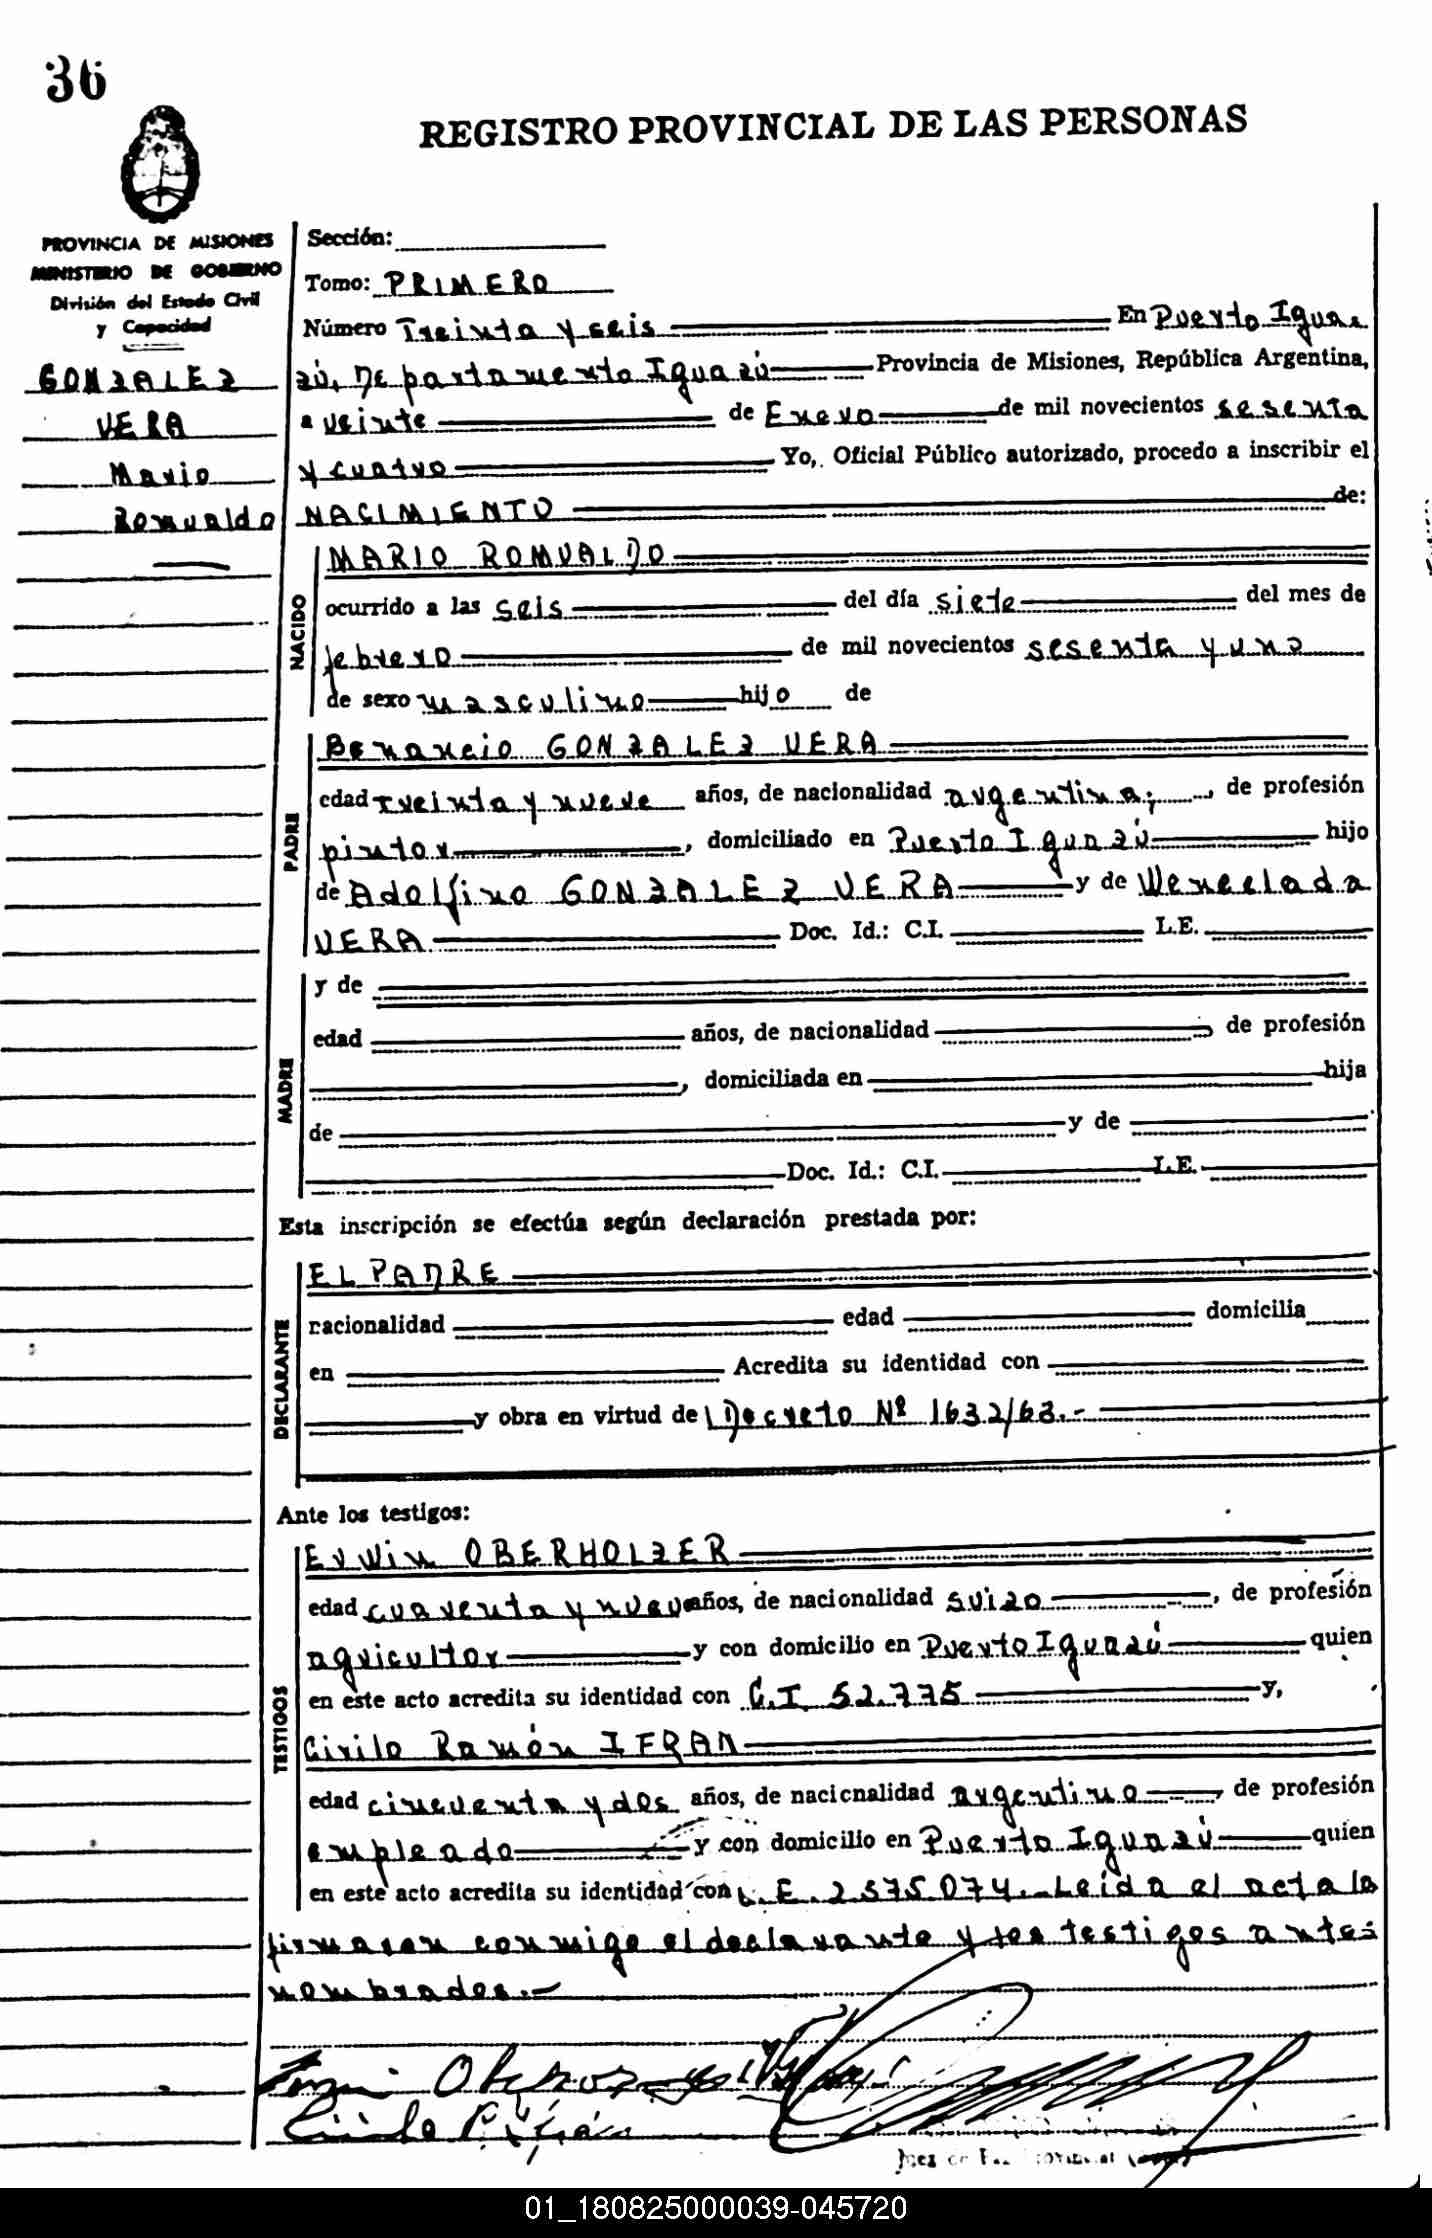 36
REGISTRO PROVINCIAL DE LAS PERSONAS
PROVINCIA DE MISIONES
MINISTERIO DE GOBIERNO
División del Estado Civil
y Capacidad
GONZALEZ
VERA
Mario
Romualdo
Sección:
Tomo: PRIMERO
Número Treinta y seis En Puerto Igua-
zú, Departamento Iguazú Provincia de Misiones, República Argentina,
a veinte de Enero de mil novecientos sesenta
y cuatro Yo, Oficial Público autorizado, procedo a inscribir el
NACIMIENTO de:
NACIDO
MARIO ROMUALDO
ocurrido a las seis del día siete del mes de
febrero de mil novecientos sesenta y uno
de sexo masculino hijo de
PADRE
Benancio GONZALEZ VERA
edad treinta y nueve años, de nacionalidad argentina, de profesión
pintor, domiciliado en Puerto Iguazú hijo
de Adolfino GONZALEZ VERA y de Wenselada
VERA Doc. Id.: C.I. L.E.
MADRE
y de
edad años, de nacionalidad , de profesión
, domiciliada en hija
de y de
Doc. Id.: C.I. L.E.
Esta inscripción se efectúa según declaración prestada por:
DECLARANTE
EL PADRE
nacionalidad edad domicilia
en Acredita su identidad con
y obra en virtud de Decreto Nº 1632/63.-
Ante los testigos:
TESTIGOS
Erwin OBERHOLZER
edad cuarenta y nueve años, de nacionalidad suizo , de profesión
agricultor y con domicilio en Puerto Iguazú quien
en este acto acredita su identidad con C.I. 52.775 y,
Cirilo Ramón IFRAN
edad cincuenta y dos años, de nacionalidad argentino , de profesión
empleado y con domicilio en Puerto Iguazú quien
en este acto acredita su identidad con L.E. 2.575.074.- Leida el acta la
firmaron conmigo el declarante y los testigos antes
nombrados.-
01_180825000039-045720